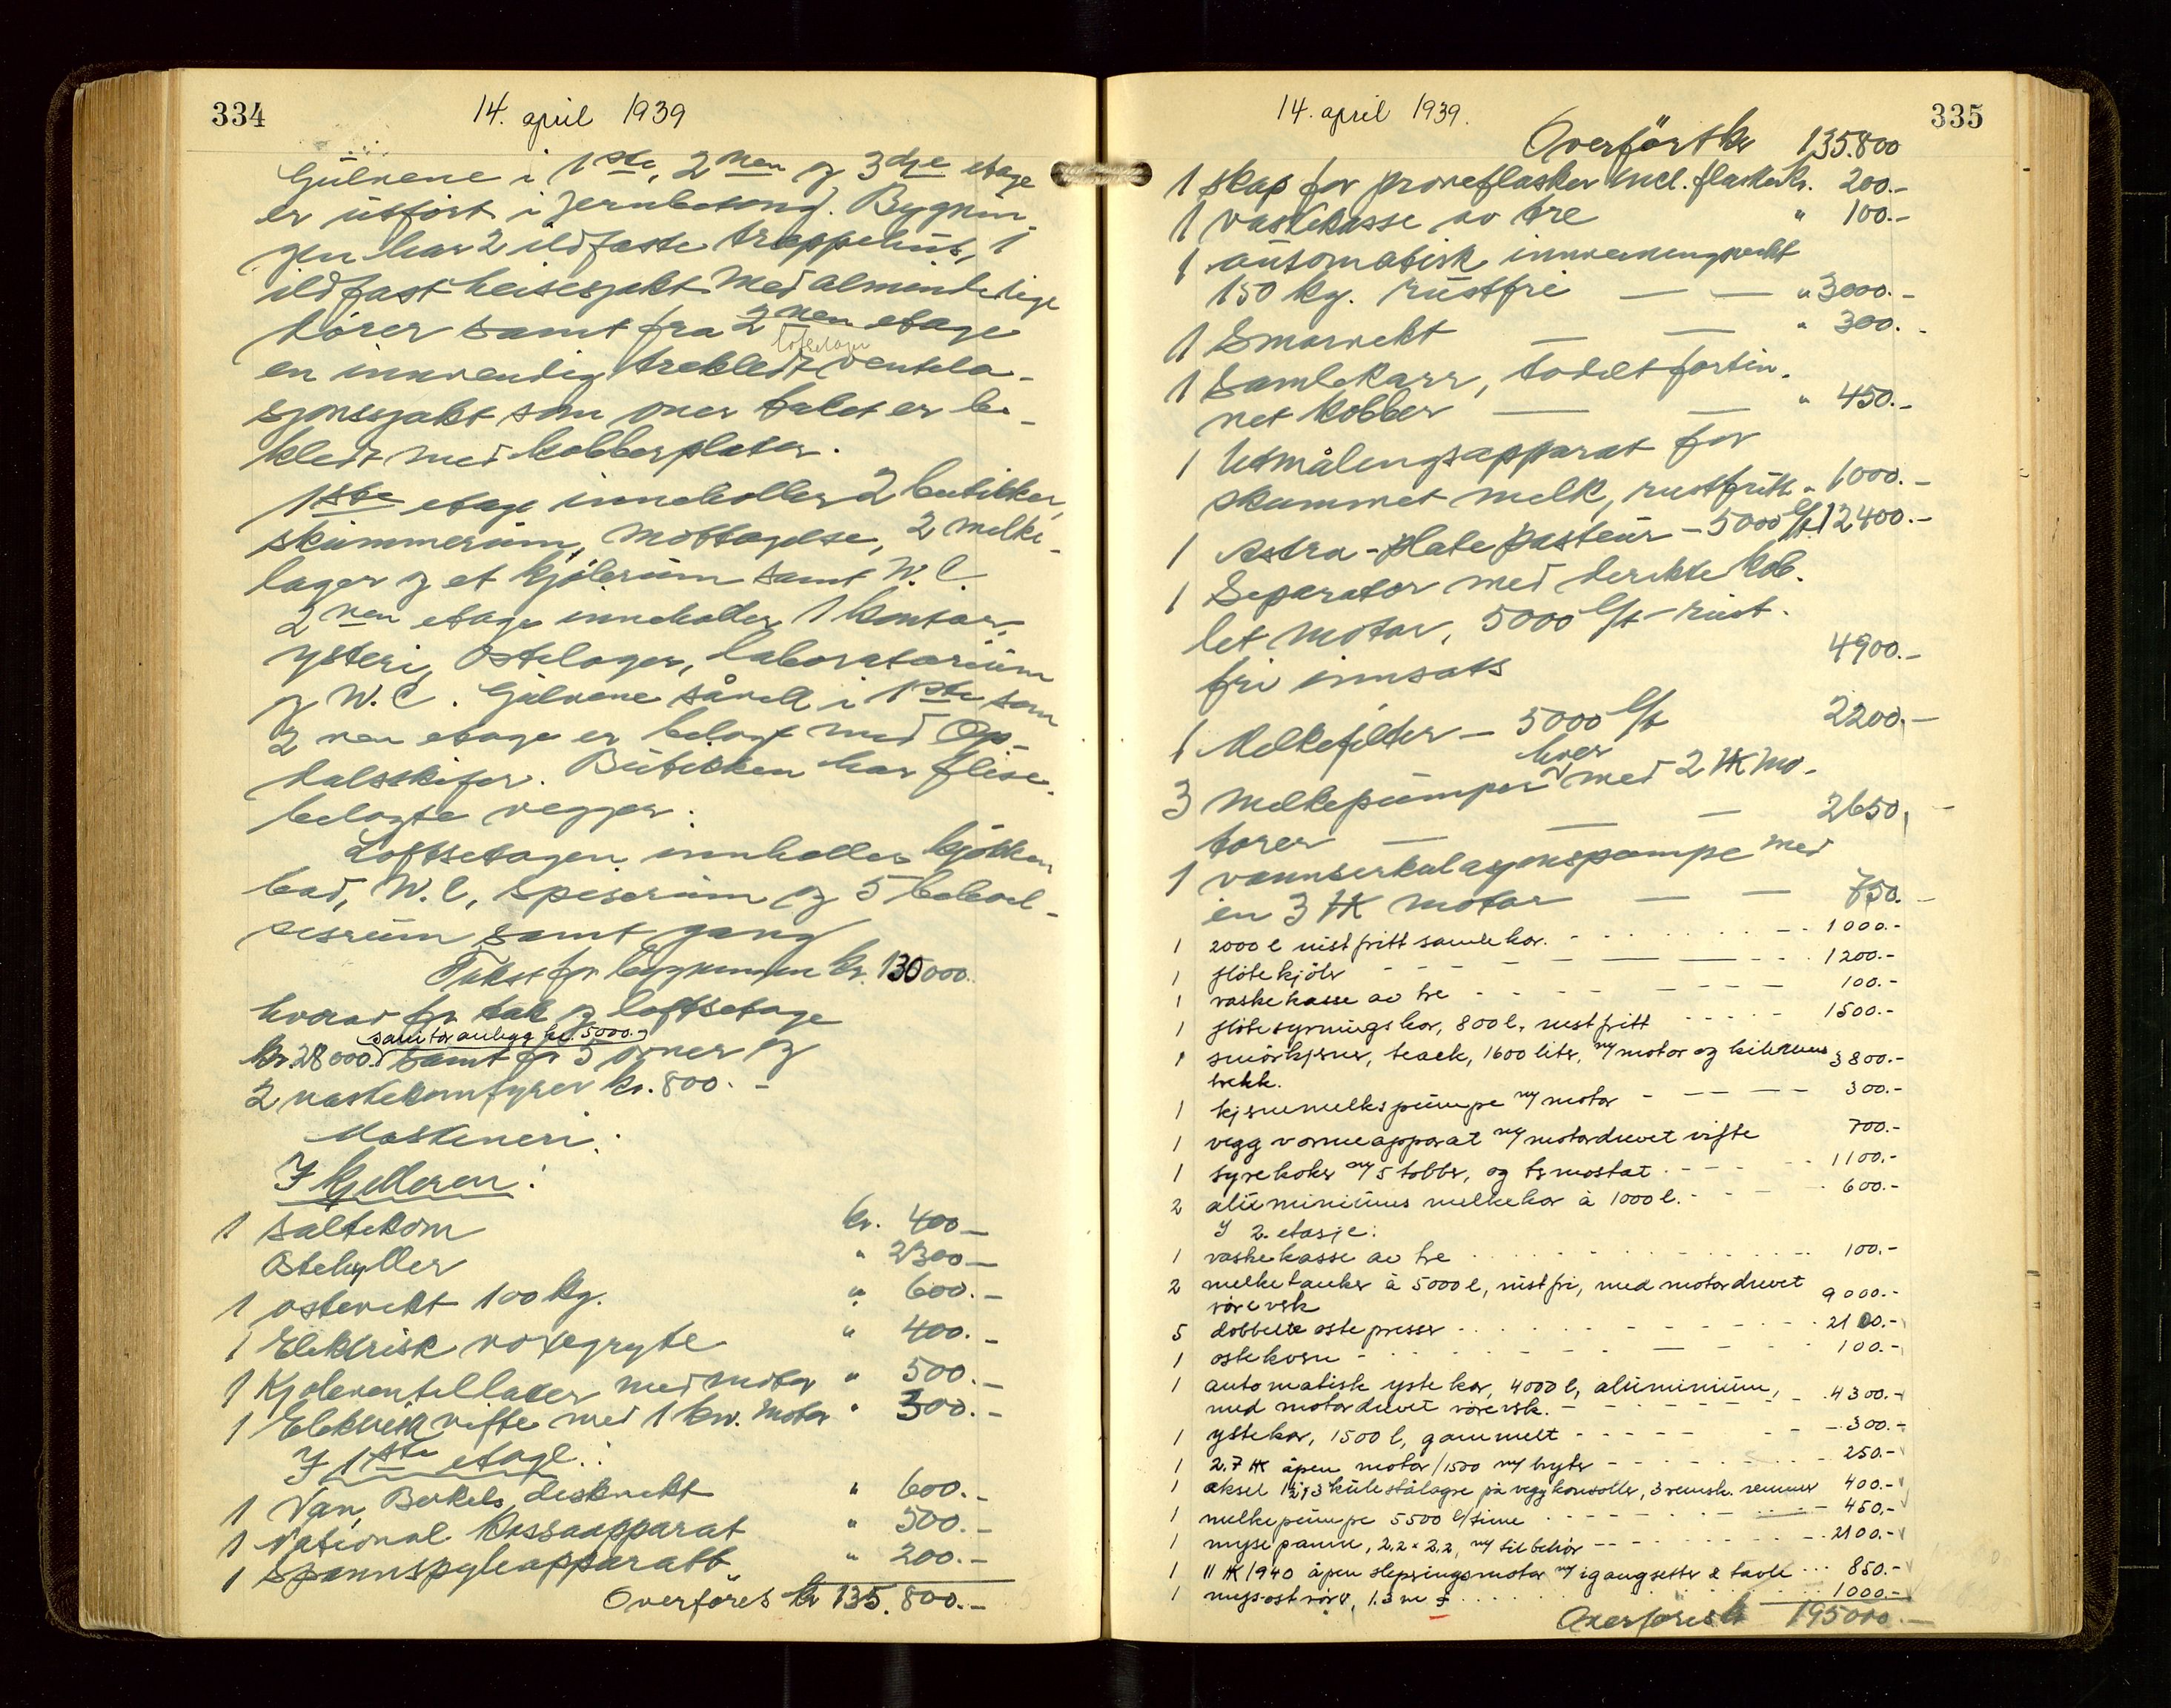 334
14. april 1939
Gulvene i 1ste, 2nen og 3dje etage
er utført i jernbetong. Bygnin
gen har 2 ildfaste trappehus, 1
ildfast heisesjakt med almindelige
dører samt fra 2nen etage
loftsetage
en innvendig trekledt ventela-
sjonssjakt som over taket er be-
kledt med kobberplater.
1ste etage inneholler 2 butikker,
skummerum, mottagelse, 2 melke-
lager og et kjølerum samt W.C.
2nen etage inneholler 1 kontor,
ysteri, ostelager, laboratorium
og W.C. Gulvene såvell i 1ste som
2nen etage er belagt med Op-
dalsskifer. Butikken har flise-
belagte vegger.
Loftsetagen innholler kjøkken
bad, W.C, spiserum og 5 beboel-
sesrum samt gang
Takst for bygningen kr. 130000.
hvorav for tak og loftsetage
sanitæranlegg kr. 5000.-
kr. 28000. samt for 5 ovner og
2 vaskekomfyrer kr. 800.-
Maskineri:
I kjelleren:
1 saltekom kr. 400 -
Ostehyller " 2300 -
1 ostevekt 100 kg. " 600.-
1 Elektrisk voxegryte " 400.-
1 Kjøleventillator med motor " 500.-
1 Elektrisk vifte med 1 kw. motor " 300.-
I 1ste etage:
1 Van Berkels diskvekt " 600.-
1 National Kassaapparat " 500.-
1 Spannspyleapparatt " 200.-
Overføres kr 135.800.-
335
14. april 1939.
Overført kr 135.800
1 skap for prøveflasker incl. flasker kr. 200.-
1 vaskekasse av tre " 100.-
1 automatisk innveiningsvekt
150 kg. rustfri — — " 3000.-
1 Smørvekt — — " 300.-
1 Samlekarr, todelt fortin.
net kobber — — " 450.-
1 Utmålingsapparat for
skummet melk, rustfritt " 1000.-
1 Astra-plate pasteur - 5000 l/t. 12400.-
1 Separator med derikte kob.
let motor, 5000 l/t rust.
fri innsats 4900.-
1 Melkefilter - 5000 l/t 2200.-
hver
3 melkepumper med 2 HK mo-
torer — — — 2650,-
1 vannserkulasjonspumpe med
en 3 HK motor — — 750.-
1 2000 l rustfritt samlekar. 1000.-
1 fløtekjøler 1200.-
1 vaskekasse av tre 100.-
1 fløtesyrningskar, 800 l, rustfritt 1500.-
1 smørkjerner, teack, 1600 liter, m/ motor og kilerems 3800.-
trekk.
1 kjernemelkspumpe m/ motor 300.-
1 veggvarmeapparat m/ motordrevet vifte 700.-
1 syrekoker m/ 5 tobber, og termostat 1100.-
2 aluminiums melkekar à 1000 l. 600.-
I 2. etasje:
1 vaskekasse av tre 100.-
2 melketanker à 5000 l, rustfri, med motordrevet
røreverk 9000.-
5 dobbelte ostepresser 2100.-
1 ostekvern 100.-
1 automatisk ystekar, 4000 l, aluminium,
med motordrevet røreverk. 4300.-
1 ystekar, 1500 l, gammelt 300.-
1 2.7 HK åpen motor/1500 m/ bryter 250.-
1 aksel 1½", 3 kulestålagre på veggkonsoller, 3 remsk. remmer 400.-
1 melkepumpe 5500 l/time 450,-
1 mysepanne, 2.2 × 2.2, m/ tilbehør 2100.-
1 11 HK/940 åpen slepringsmotor m/ igangsetter & tavle 850.-
1 mysostrører, 1.3 m 1000.-
Overføres kr 195000.-